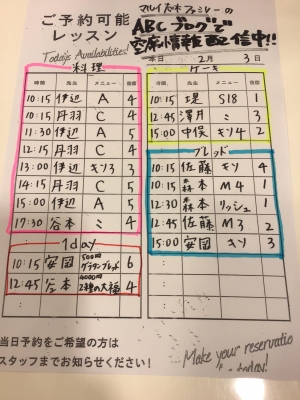 ご予約可能
レッスン
Today's Availabilities!
ABCブログで
空席情報配信中!!
本日 2月 3日
料理
時間 先生 メニュー 空席
10:15 伊辺 A 4
10:15 丹羽 C 4
11:30 伊辺 A 5
12:15 丹羽 C 4
13:00 伊辺 キソ3 3
14:15 丹羽 C 5
15:00 伊辺 A 5
17:30 谷本 ミ 4
1day
10:15 安國 500円グラタンブレッド 6
12:45 谷本 4000円2種の大福 4
ケーキ
時間 先生 メニュー 空席
10:15 堤 S18 1
12:45 澤井 ミ 3
15:00 中俣 キソ4 2
ブレッド
10:15 佐藤 キソ 4
10:15 森本 M4 1
12:30 森本 リッシュ 1
12:45 佐藤 M3 2
15:00 安國 キソ 3
当日予約をご希望の方は
スタッフまでお知らせください!
Make your reservation
today!